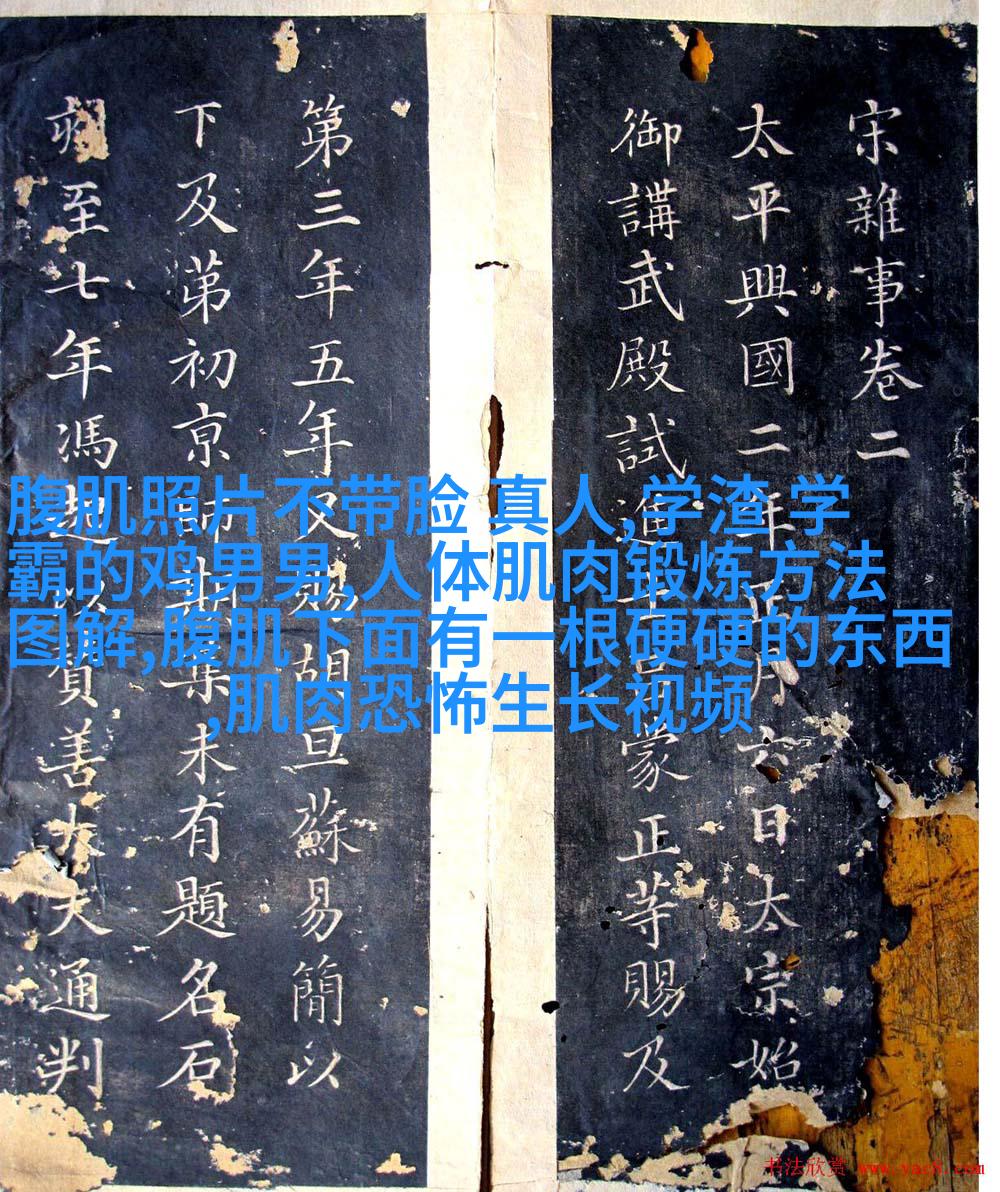 宋雜事卷二
太平興國二年正月六日太宗始
御講武殿試進士呂蒙正等賜及
第三年五年又賜胡旦蘇易簡以
下及苐初京師期集未有題名石
至七年馮善大夫通判
腹肌照片不带脸 真人,学渣 学
霸的鸡男男,人体肌肉锻炼方法
图解,腹肌下面有一根硬硬的东西
,肌肉恐怖生长视频
书法欣赏 www.yac8.com